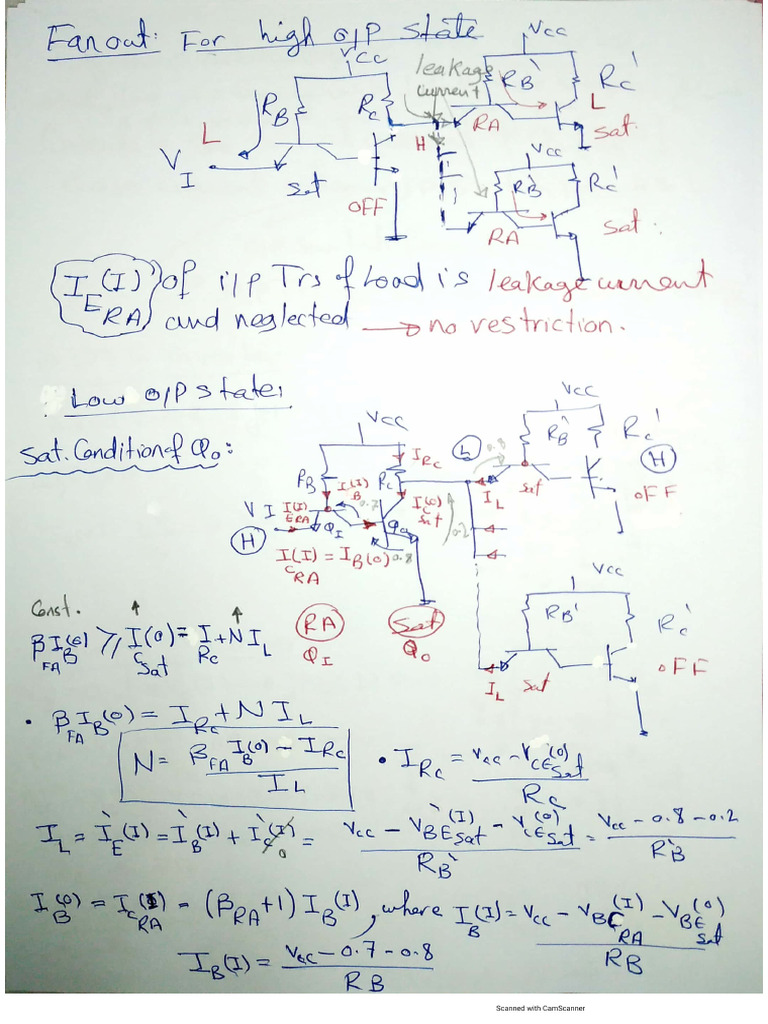 Fan out: For high o/P state
VCC
VCC
leakage
current
RB
RC
RB'
RC'
L
RA
Sat.
L
VI
H
Sat
OFF
VCC
RB'
RC'
RA
Sat.
IE(I)RA of i/p Trs of Load is leakage current
and neglected → no restriction.
Low o/P state:
Sat. Condition of Qo:
VCC
VCC
IRC
L
0.8
RB'
RC'
H
RB
IB(I)
RC
0.7
IL
Sat
OFF
VI
IE(I)RA
QI
Qo
IC(o)sat
0.2
H
IC(I)RA = IB(o)
0.8
VCC
Const.
RA
Sat
RB'
RC'
βFA IB(o) ≥ IC(o)Sat = IRC + N IL
QI
Qo
OFF
IL
Sat
• βFA IB(o) = IRC + N IL
N = (βFA IB(o) - IRC) / IL
• IRC = (VCC - VCE(o)Sat) / RC
IL = I'E(I) = I'B(I) + I'C(I) 0 = (VCC - V'BE(I)sat - VCE(o)sat) / RB' = (VCC - 0.8 - 0.2) / RB'
IB(o) = IC(I)RA = (βRA + 1) IB(I), where IB(I) = (VCC - VBC(I)RA - VBE(o)sat) / RB
IB(I) = (VCC - 0.7 - 0.8) / RB
Scanned with CamScanner